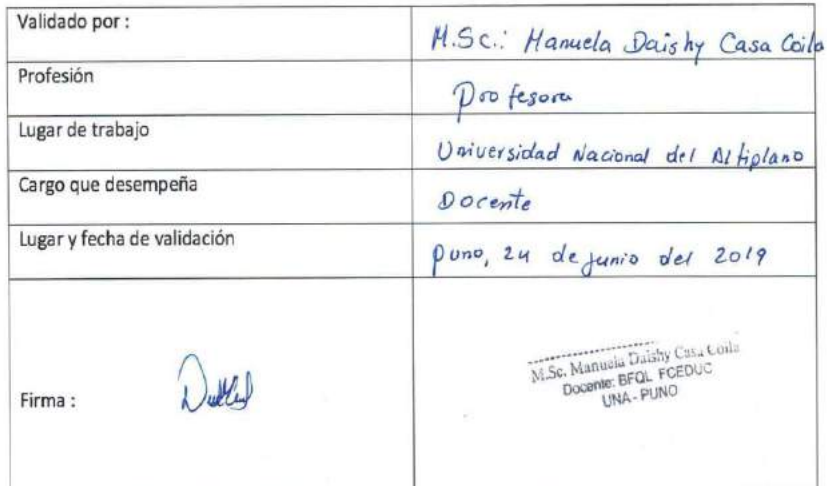 Validado por :
M.Sc.: Manuela Daishy Casa Coila
Profesión
Profesora
Lugar de trabajo
Universidad Nacional del Altiplano
Cargo que desempeña
Docente
Lugar y fecha de validación
puno, 24 de junio del 2019
Firma :
M.Sc. Manuela Daishy Casa Coila
Docente: BFQL FCEDUC
UNA - PUNO